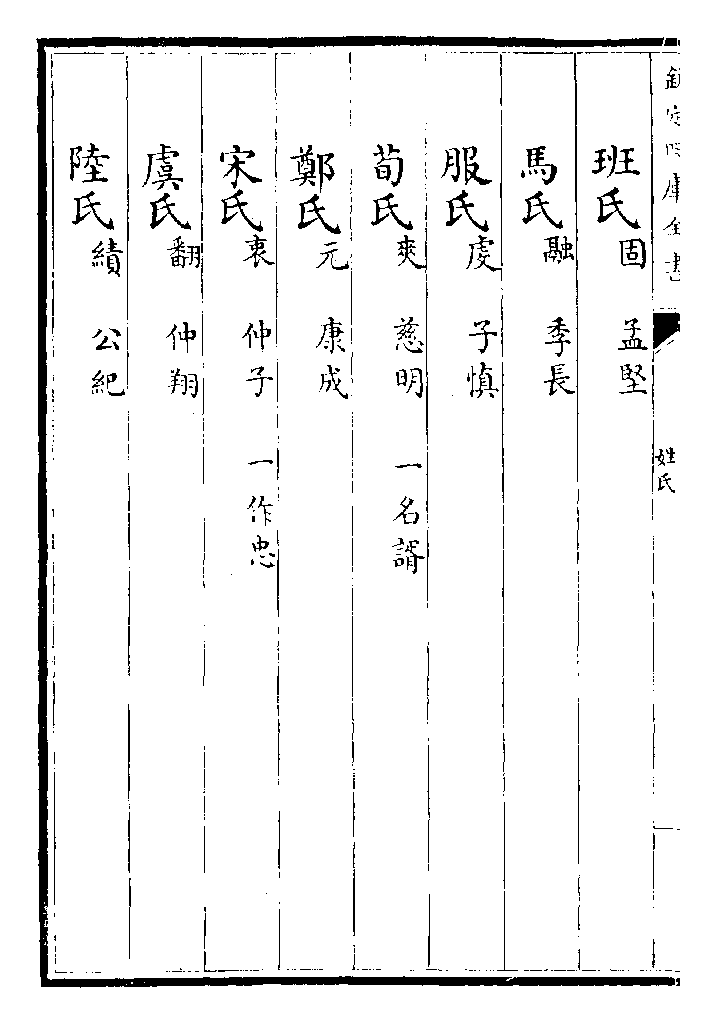 欽定四庫全書
姓氏
班氏固 孟堅
馬氏融 季長
服氏虔 子慎
荀氏爽 慈明 一名諝
鄭氏元 康成
宋氏衷 仲子 一作忠
虞氏翻 仲翔
陸氏績 公紀